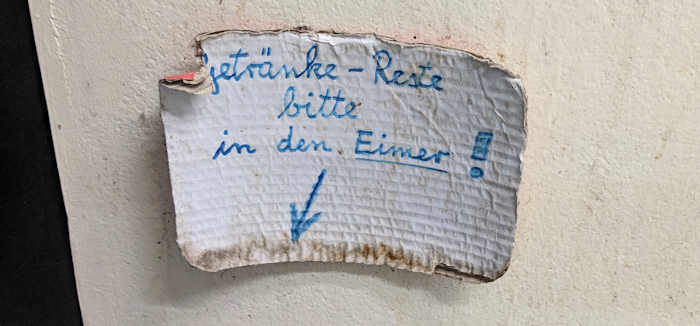 Getränke - Reste
bitte
in den Eimer !